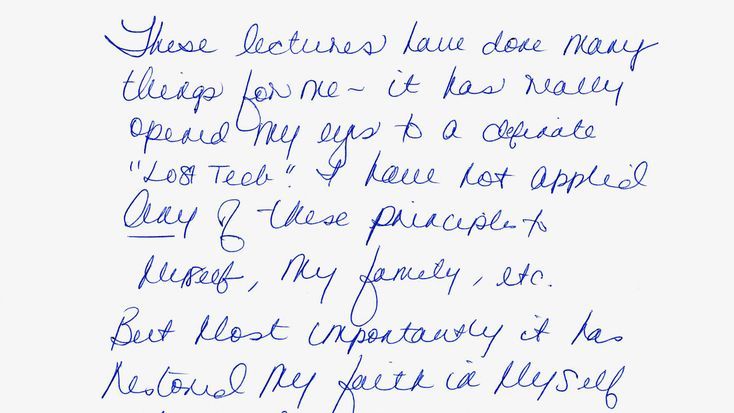 These lectures have done many
things for me - it has really
opened my eyes to a definate
"Lost Tech". I have not applied
Any of these principles to
Myself, my family, etc.
But most importantly it has
restored my faith in Myself